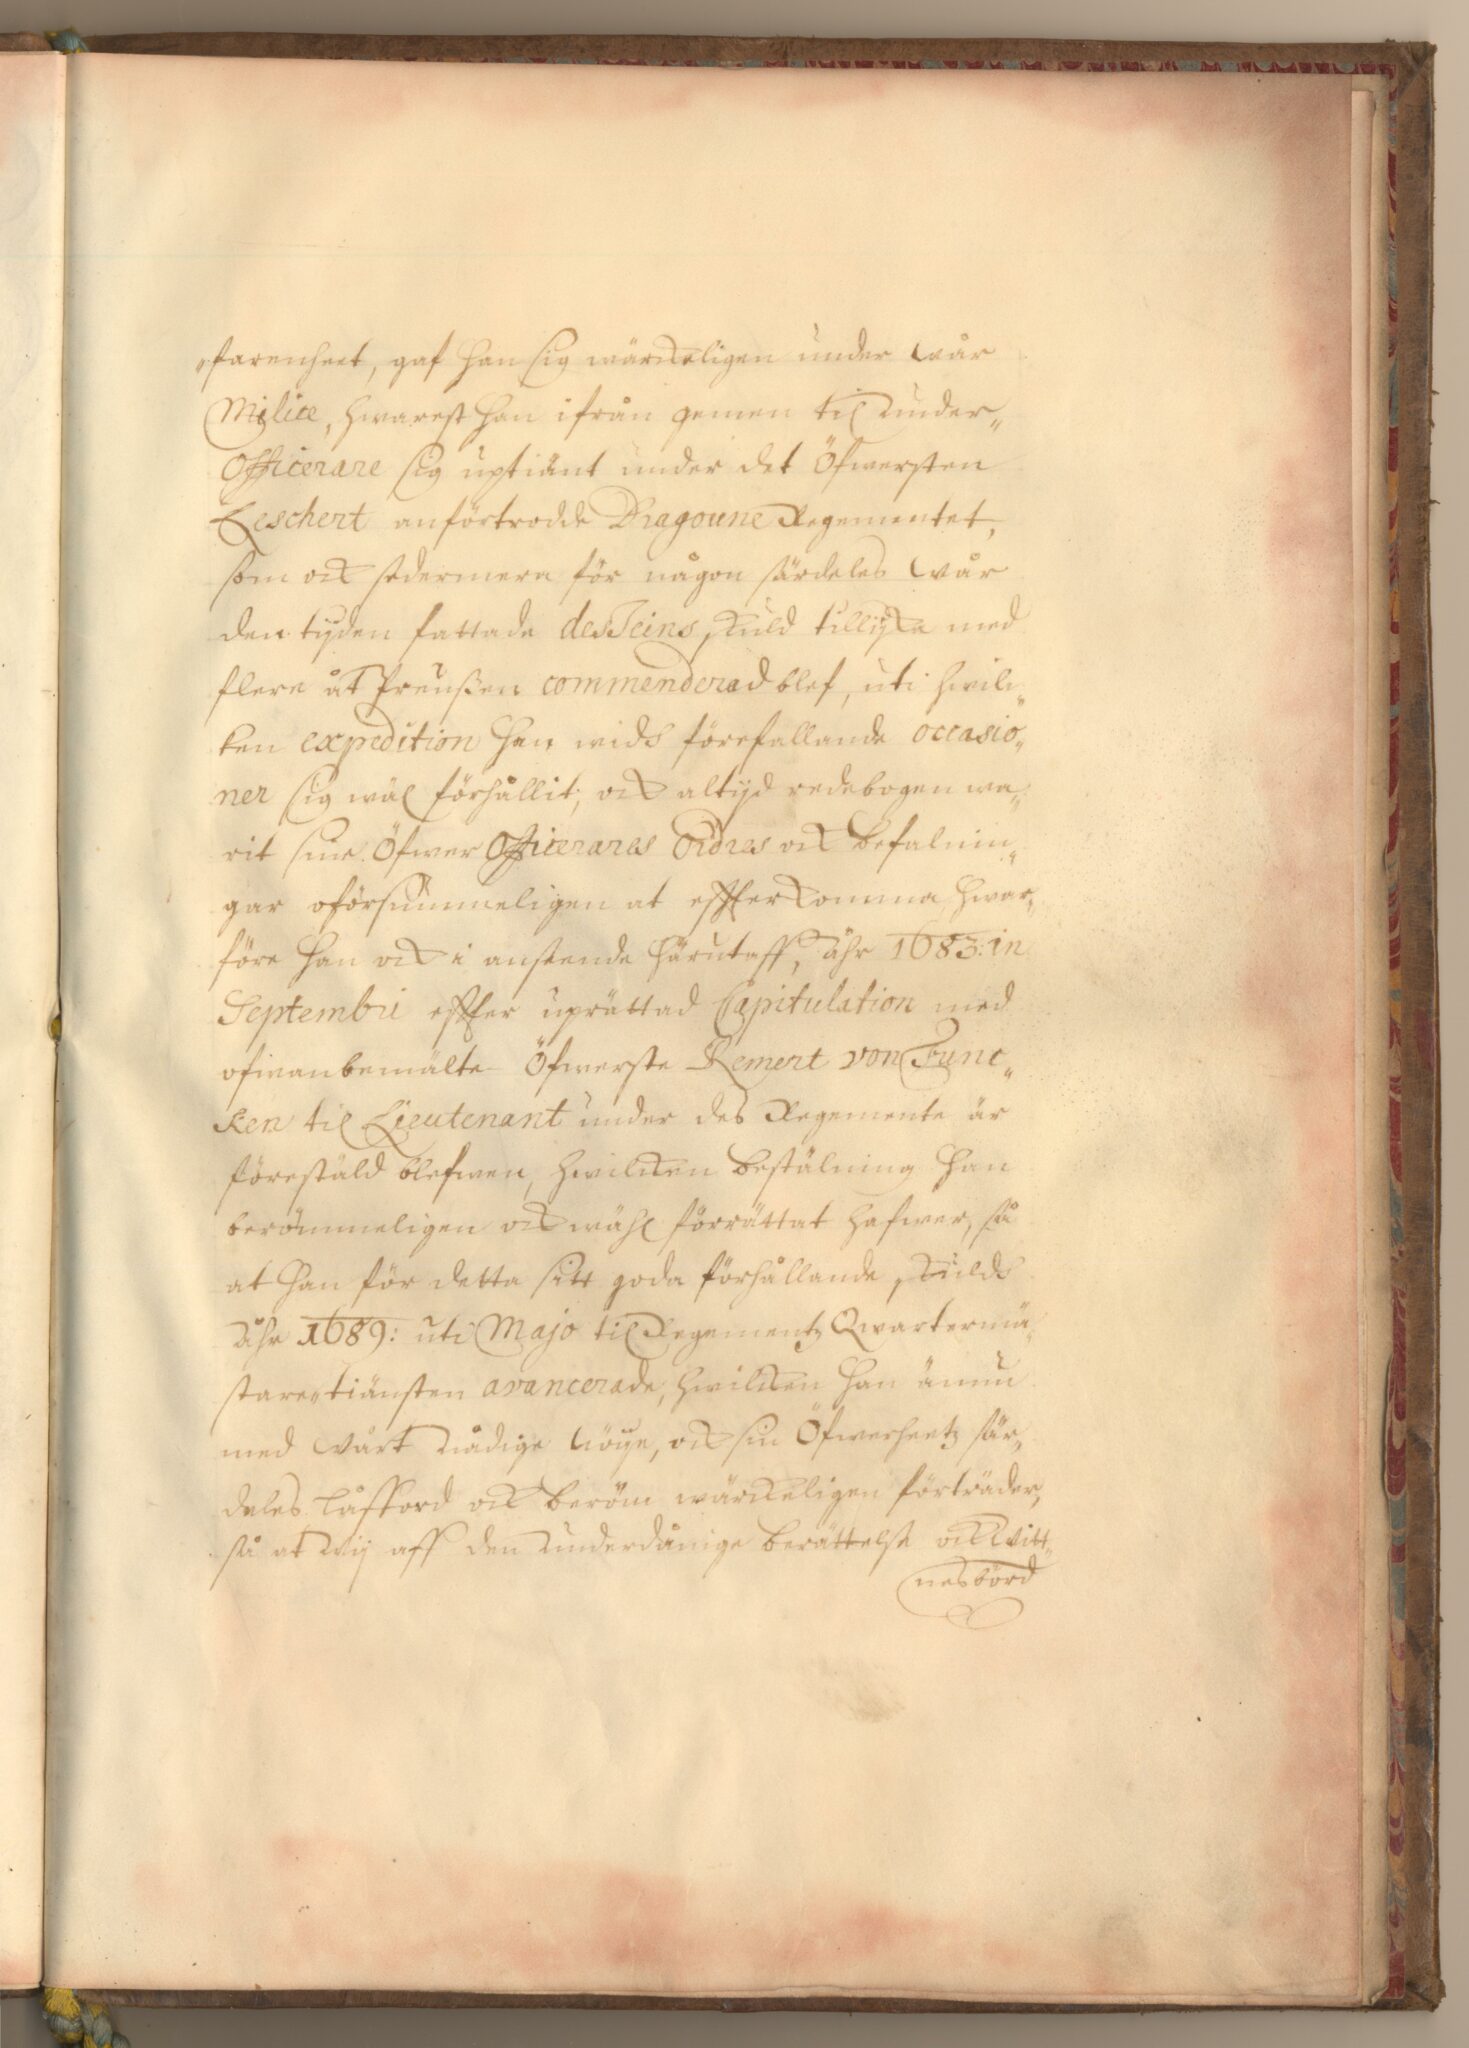 „farenheet, gaf han sig wärckeligen under wår
Milice, hwarest han ifrån gemen til Under„
Officerare sig uptiänt under det Öfwersten
Leschert anförtrodde Dragoune Regementet,
som ock sedermera för någon särdeles wår
den tyden fattade desseins skuld tillijka med
flere åt Preussen commenderad blef, uti hwil„
ken expedition han wids förefallande occasio„
ner sig wäl förhållit, ock altijd redebogen wa„
rit sine Öfwer Officerares Ordres ock befalnin„
gar oförsummeligen at effterkomma, hwar„
före han ock i anseende härutaff, åhr 1683: in
Septembri effter uprättad Capitulation med
ofwanbemälte Öfwerste Remert von Func„
ken til Lieutenant under des Regemente är
förestäld blefwen, hwilcken bestälning han
berömmeligen ock wähl förrättat hafwer, så
at han för detta sitt goda förhållande skulds
Åhr 1689: uti Majo til Regementz Qwartermä„
stare„tiänsten avancerade, hwilcken han ännu
med Vårt Nådige Nöije, ock sin Öfwerheetz sär„
deles låfford ock beröm wärckeligen förträder,
så at Wij aff den Underdånige berättelse ock Witt„
nesbörd